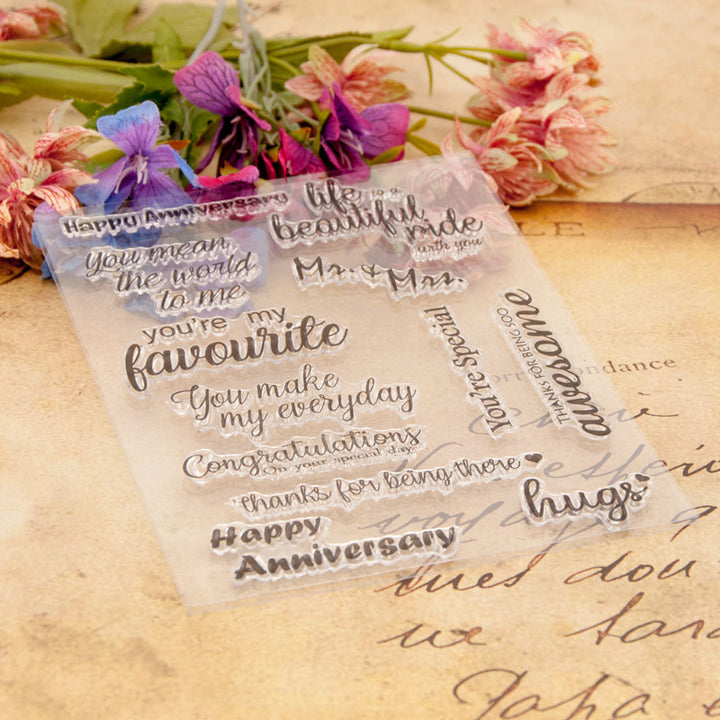 Happy Anniversary
life is a
beautiful ride
with you
You mean
the world
to me
Mr. & Mrs.
you're my
favourite
You're Special
THANKS FOR BEING SOO
awesome
You make
my everyday
Congratulations
On your special day
thanks for being there
hugs
Happy
Anniversary